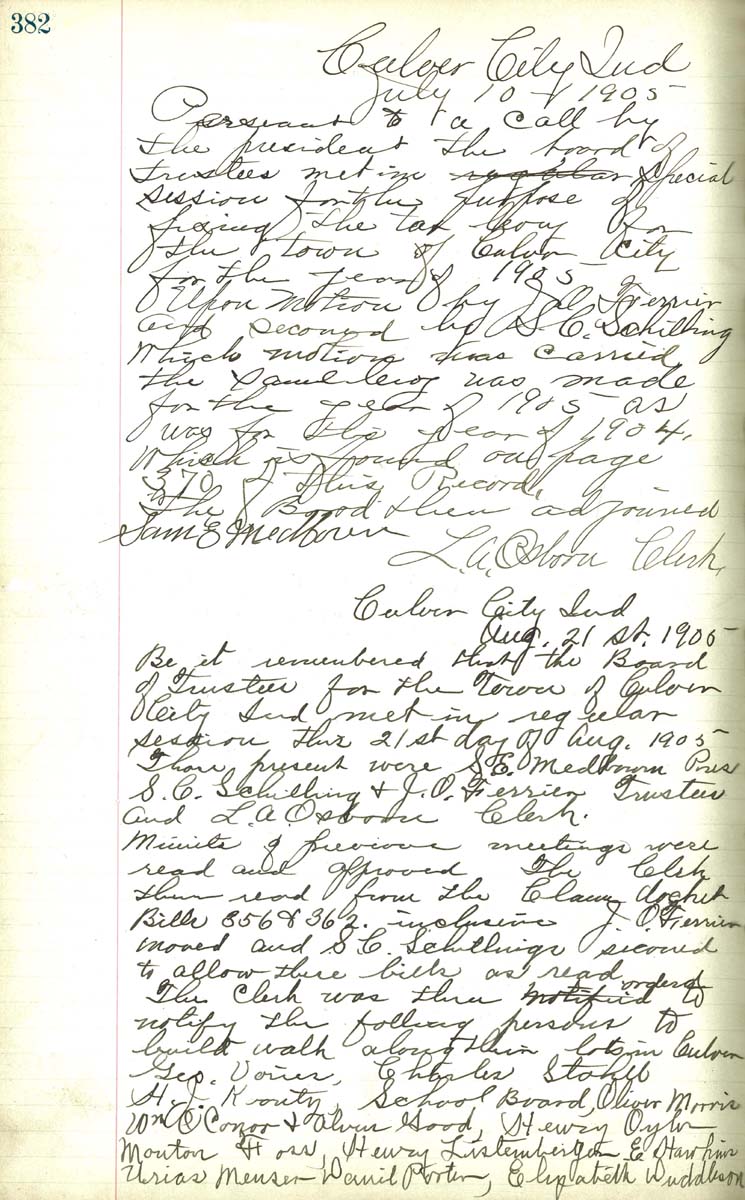 382
Culver City Ind
July 10 - 1905
Pursuant to a call by
the president the board of
trustees met in regular special
session for the purpose of
fixing the tax levy for
the town of Culver City
for the year of 1905
Upon motion by J.O. Ferrier
and second by S.C. Schilling
Which motion was carried
the same levy was made
for the year of 1905 as
was for the year of 1904.
Which is found on page
370 of this Record.
The Bord then adjoined
Sam E Medbourn
L.A. Osborn Clerk.
Culver City Ind
Aug. 21 st. 1905
Be it remembered that the Board
of Trustees for the Town of Culver
City Ind met in regular
session this 21st day of Aug. 1905
Those present were S.E. Medbourn Pres
S.C. Schilling & J.O. Ferrier Trustees
and L.A. Osborn Clerk.
Minits of previous meetings were
read and approved The Clerk
then read from the Claim docket
Bills 356 & 362. inclusive J.O. Ferrier
moved and S.C. Schillings second
to allow these bills as read
The Clerk was then notified ordered to
notify the folling persons to
build walk along their lots in Culver
Geo. Vories, Charles Stahl
H.J. Krouty, School Board, Oliver Morris
Wm O Conor & Alvin Good, Henry Oyler
Monton Foss, Henry Listenberger E Hawkins
Urias Menser Daniel Porter, Elizabeth